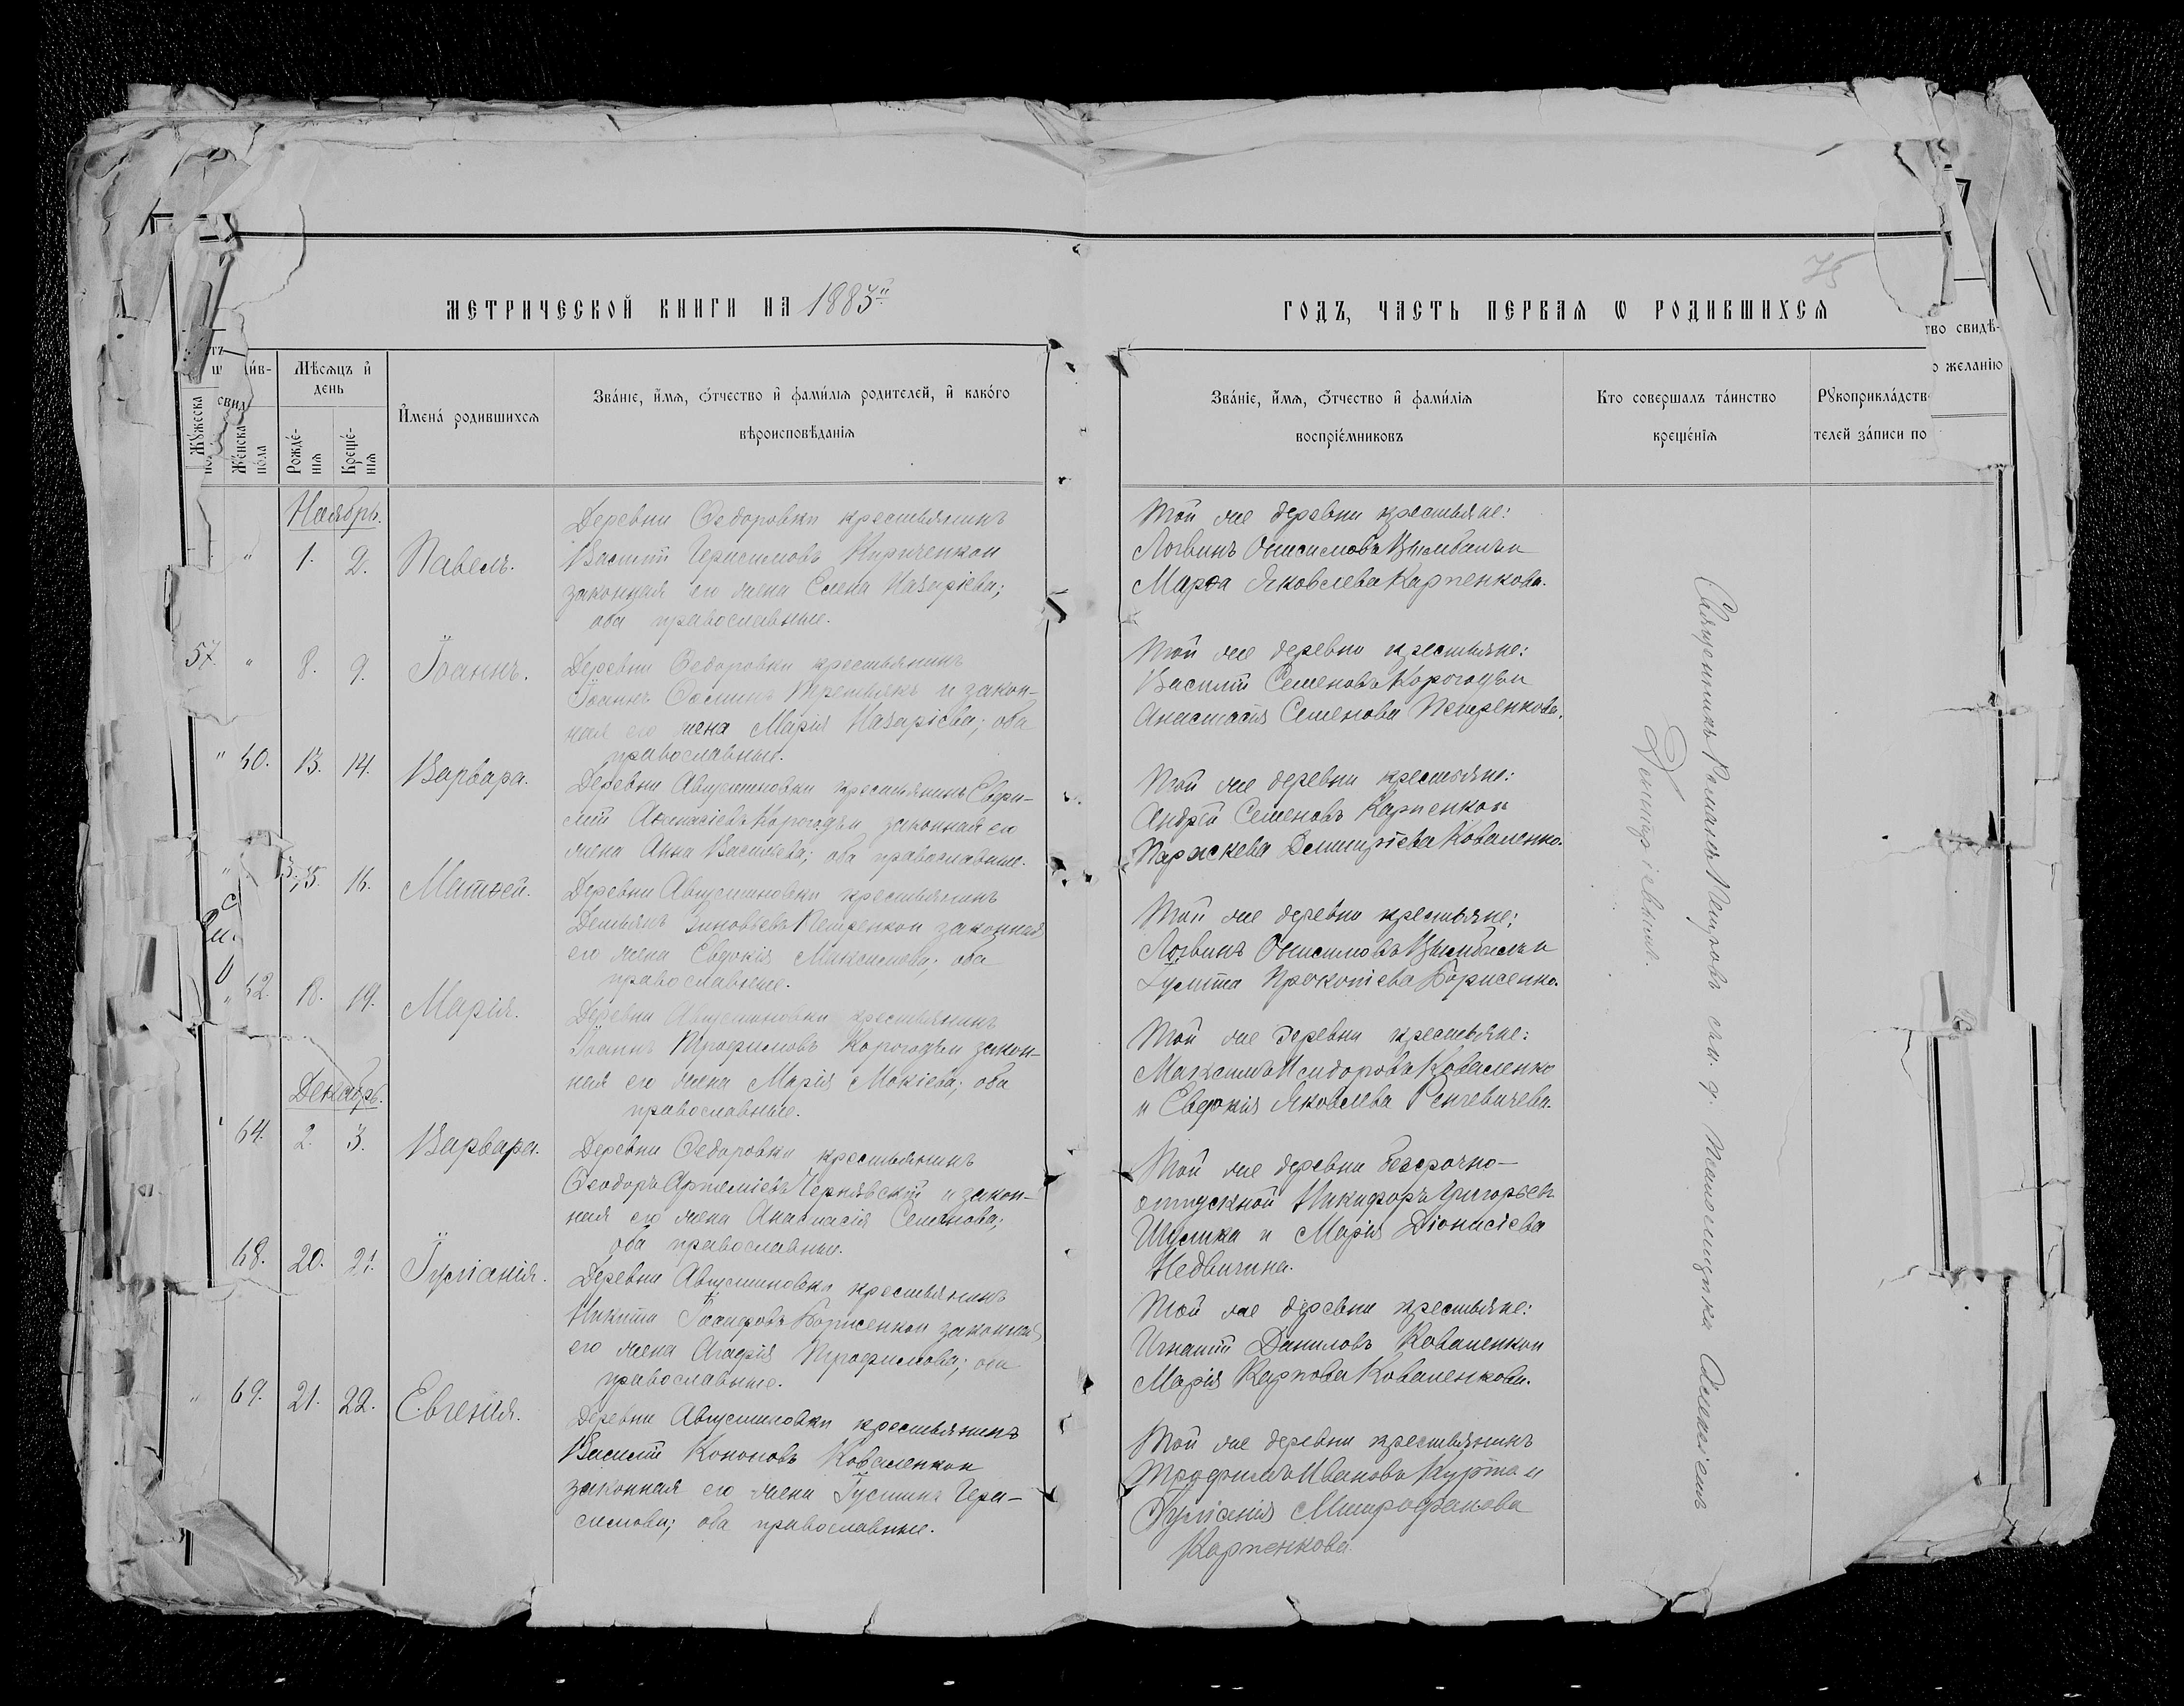 75
МЕТРИЧЕСКОЙ КНИГИ НА 1883й
ГОДЪ, ЧАСТЬ ПЕРВАЯ Ѡ РОДИВШИХСЯ
Мѣсяцъ и день
Мужеска
Женска пола
Рождения
Крещения
Имена родившихся
Званіе, имя, отчество и фамилія родителей, и какого
вѣроисповѣданія
Званіе, имя, отчество и фамилія
воспріемниковъ
Кто совершалъ таинство
крещенія
Рукоприкладств
тво свидѣ-
телей записи по
о желанію
Ноябрь.
" 1. 2. Павелъ.
Деревни Ѳедоровки крестьянинъ
Василій Герасимовъ Кириченко и
законная его жена Елена Назаріева;
оба православные.
Той же деревни крестьяне:
Логвинъ Онисимовъ Цымбалъ и
Марѳа Яковлева Карпенкова.
57. " 8. 9. Іоаннъ.
Деревни Ѳедоровки крестьянинъ
Іоаннъ Ѳоминъ Третьякъ и закон-
ная его жена Марія Назаріева; оба
православные.
Той же деревни крестьяне:
Василій Семеновъ Корогодъ и
Анастасія Семенова Петренкова.
" 60. 13. 14. Варвара.
Деревни Августиновки крестьянинъ Евфи-
мій Аѳанасіевъ Корогодъ и законная его
жена Анна Васильева; оба православные.
Той же деревни крестьяне:
Андрей Семеновъ Карпенко и
Параскева Димитріева Коваленко.
15. 16. Матѳей.
Деревни Августиновки крестьянинъ
Демьянъ Зиновьевъ Петренко и законная
его жена Евдокія Максимова; оба
православные.
Той же деревни крестьяне:
Логвинъ Онисимовъ Цымбалъ и
Іулитта Прокопіева Борисенко.
" 62. 18. 19. Марія.
Деревни Августиновки крестьянинъ
Іоаннъ Трофимовъ Корогодъ и закон-
ная его жена Марія Мокіева; оба
православные.
Той же деревни крестьяне:
Максимъ Исидоровъ Коваленко
и Евдокія Яковлева
Декабрь.
64. 2. 3. Варвара.
Деревни Ѳедоровки крестьянинъ
Ѳеодоръ Артеміевъ Чернявскій и закон-
ная его жена Анастасія Семенова;
оба православные.
Той же деревни безсрочно-
отпускной Никифоръ Григорьевъ
Шулика и Марія Діонисіева
Недвигина.
68. 20. 21. Іуліанія.
Деревни Августиновки крестьянинъ
Никита Іосифовъ Борисенко и законная
его жена Агафія Трофимова; оба
православные.
Той же деревни крестьяне:
Игнатій Даниловъ Коваленко и
Марія Карпова Коваленкова.
" 69. 21. 22. Евгенія.
Деревни Августиновки крестьянинъ
Василій Кононовъ Коваленко и
законная его жена Іустина Гера-
симова; оба православные.
Той же деревни крестьянинъ
Трофимъ Ивановъ и
Іуліанія Митрофанова
Карпенкова.
Священникъ Романъ Петровъ съ и. д. псаломщика Алексіемъ